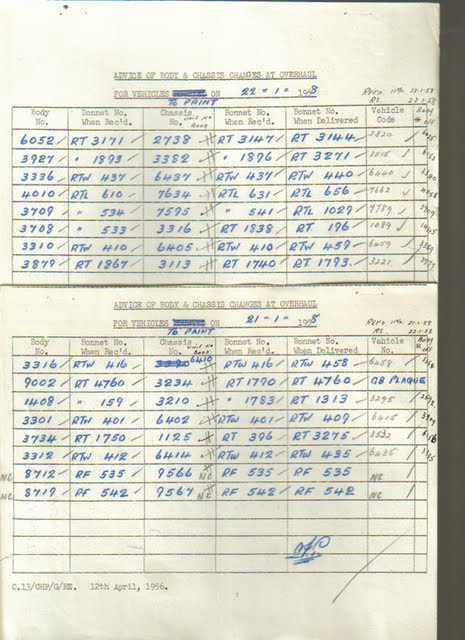 ADVICE OF BODY & CHASSIS CHANGES AT OVERHAUL
FOR VEHICLES TO PAINT ON 22 - 1 - 1958
Rec'd 22-1-58
Body No. Bonnet No. When Rec'd. Chassis No. UNIT No BOOK Bonnet No. Bonnet No. When Delivered Vehicle Code Body
6052 RT 3171 2738 RT 3147 RT 3144 2820
3927 " 1893 3382 " 1896 RT 3271 3515
3336 RTW 437 6437 RTW 437 RTW 440 6440
4010 RTL 610 7634 RTL 631 RTL 656 7662
3709 " 534 7595 " 541 RTL 1029 7789
3708 " 533 3316 RT 1838 RT 196 1089
3310 RTW 410 6405 RTW 410 RTW 459 6459
3879 RT 1867 3113 RT 1740 RT 1793 3221
ADVICE OF BODY & CHASSIS CHANGES AT OVERHAUL
FOR VEHICLES TO PAINT ON 21 - 1 - 1958
Rec'd 21-1-58
Body No. Bonnet No. When Rec'd. Chassis No. UNIT No BOOK Bonnet No. Bonnet No. When Delivered Vehicle No. Body
3316 RTW 416 6410 RTW 416 RTW 458 6458
9002 RT 4760 3234 RT 1770 RT 4760 GB PLAQUE
1408 " 159 3210 " 1783 RT 1313 3295
3301 RTW 401 6402 RTW 401 RTW 409 6415
3734 RT 1750 1125 RT 396 RT 3275 3532
3312 RTW 412 6414 RTW 412 RTW 435 6435
NC 8712 RF 535 9566 NC RF 535 RF 535 NC
NC 8719 RF 542 9567 NC RF 542 RF 542 NC
C.13/CHP/G/NE. 12th April, 1956.